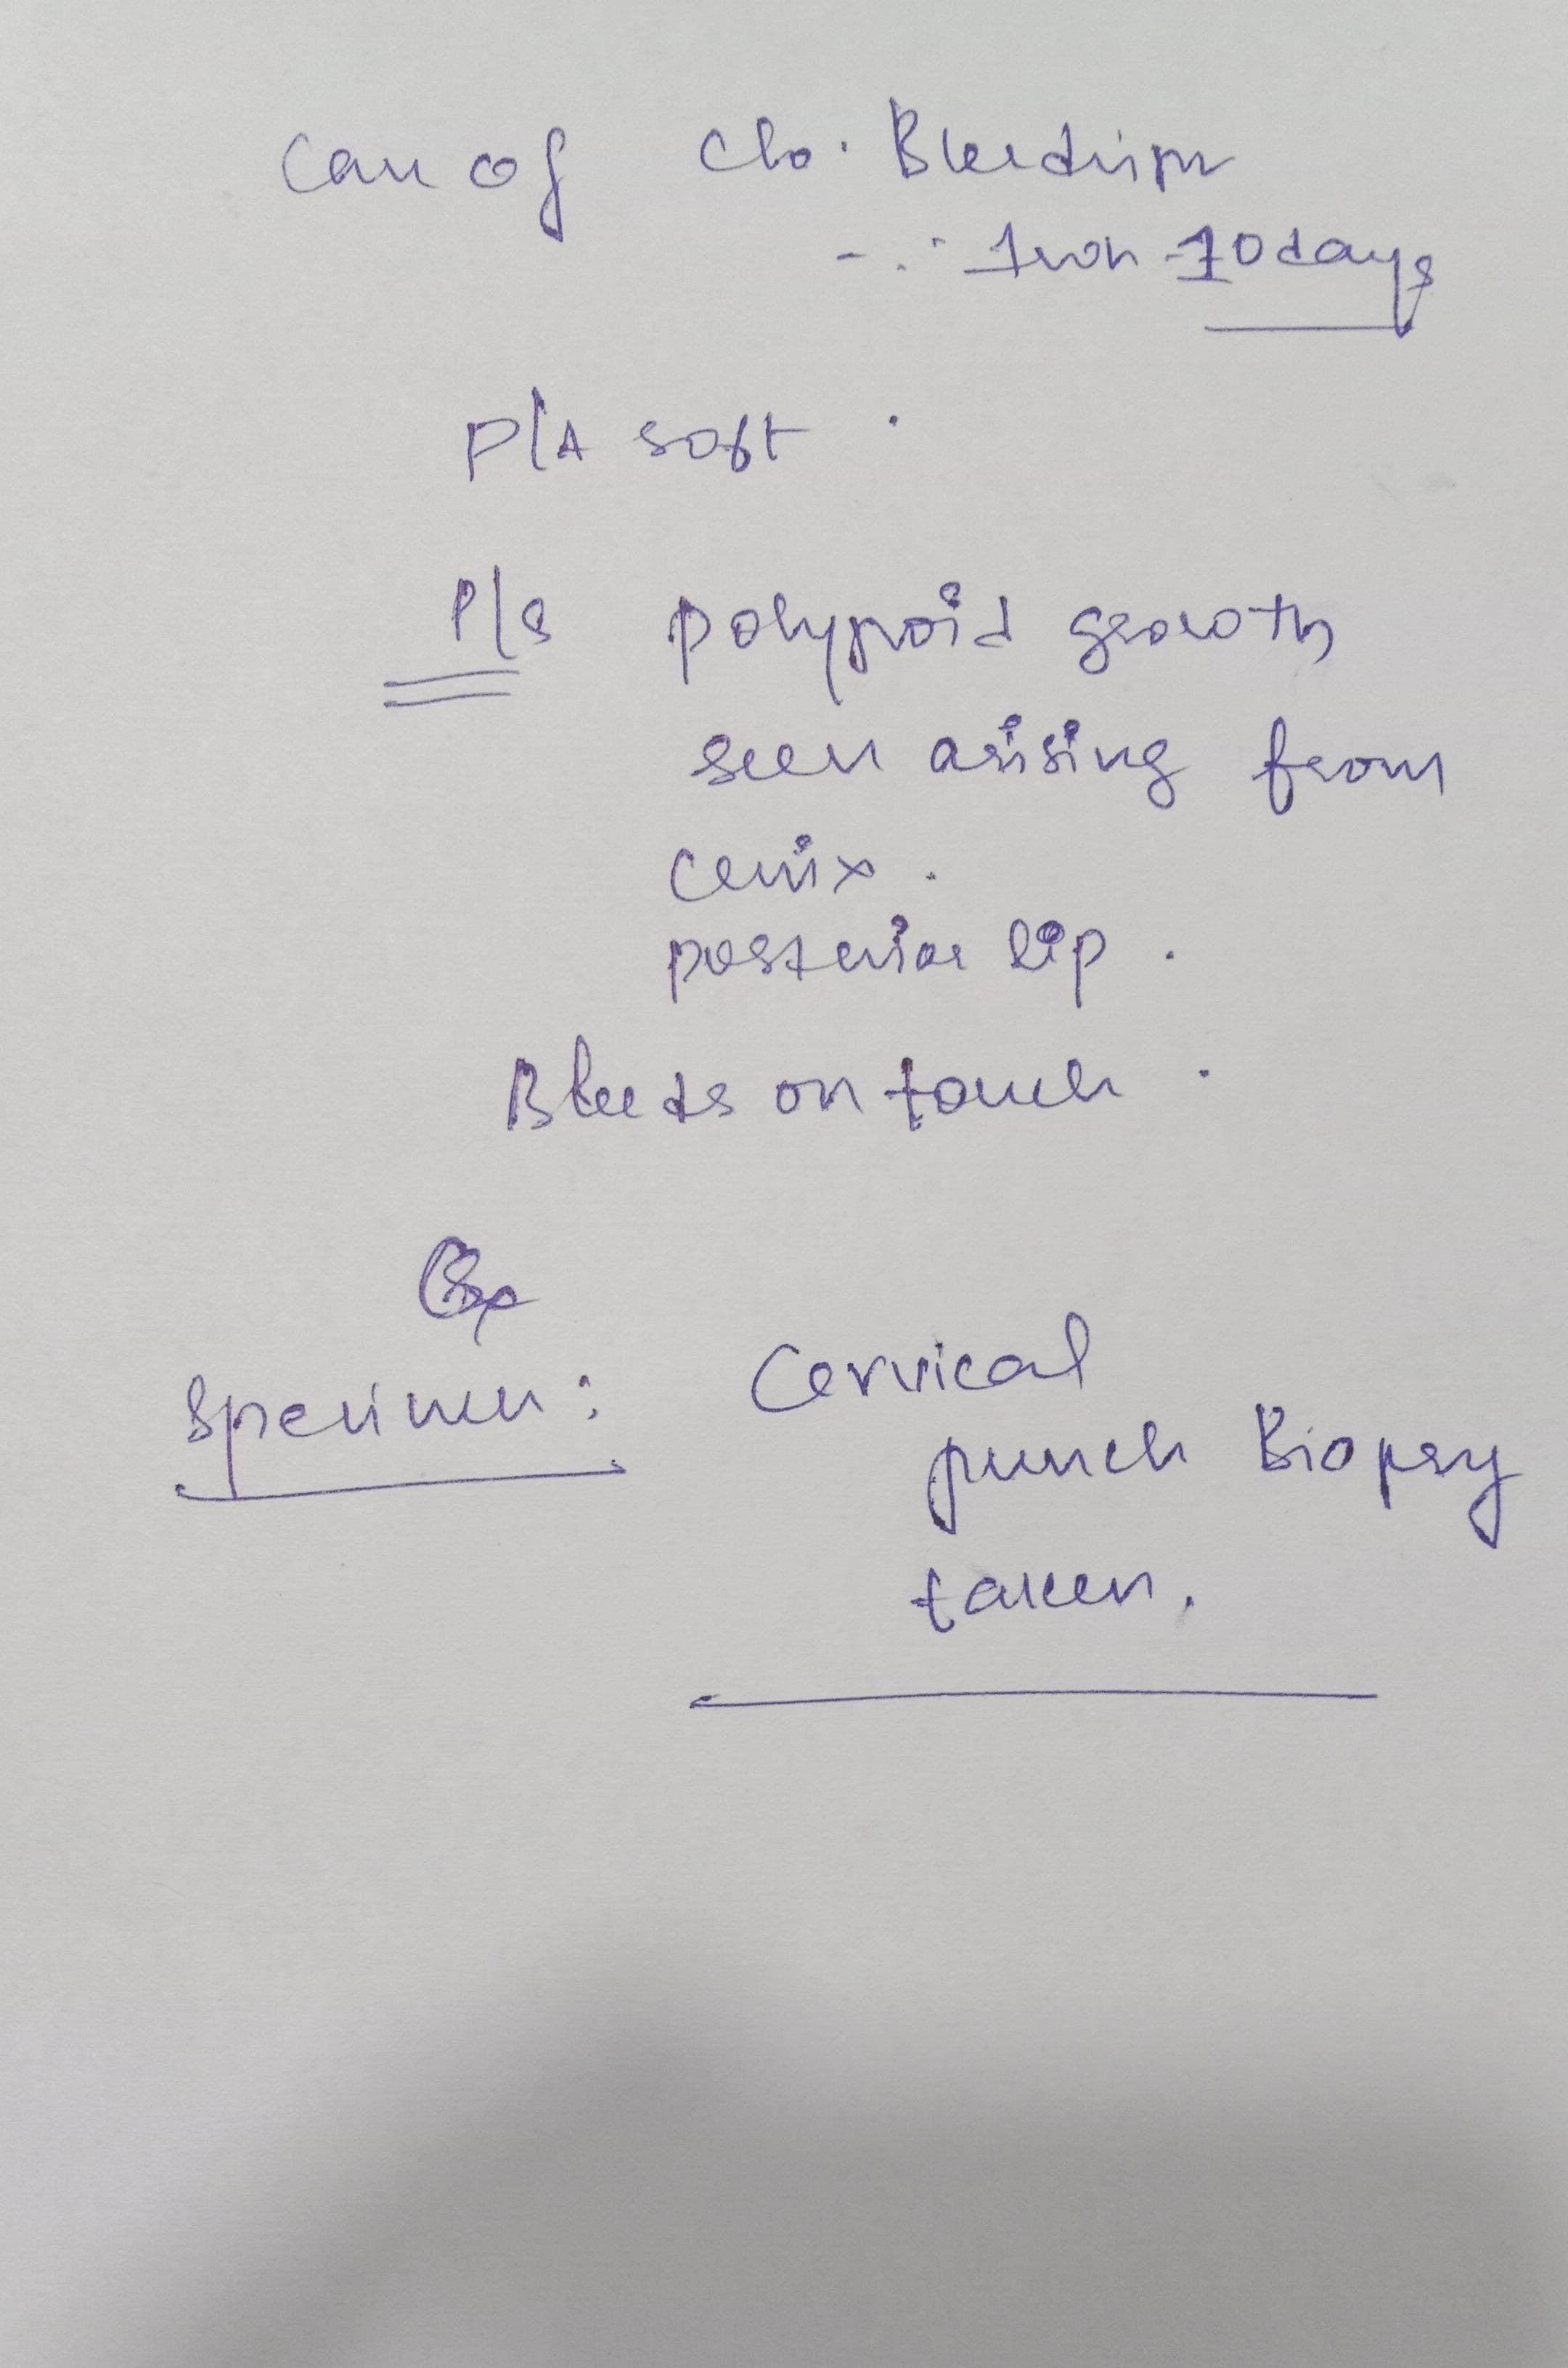 Case of c/o. Bleeding P/V
-.. from 10 days
P/A soft.
P/S polypoid growth
seen arising from
cervix.
posterior lip.
Bleeds on touch.
Specimen: Cervical
punch Biopsy
taken.